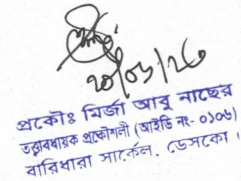 ২০/০৬/২৪
প্রকৌঃ মির্জা আবু নাছের
তত্ত্বাবধায়ক প্রকৌশলী (আইডি নং- ০১০৬)
বারিধারা সার্কেল, ডেসকো।